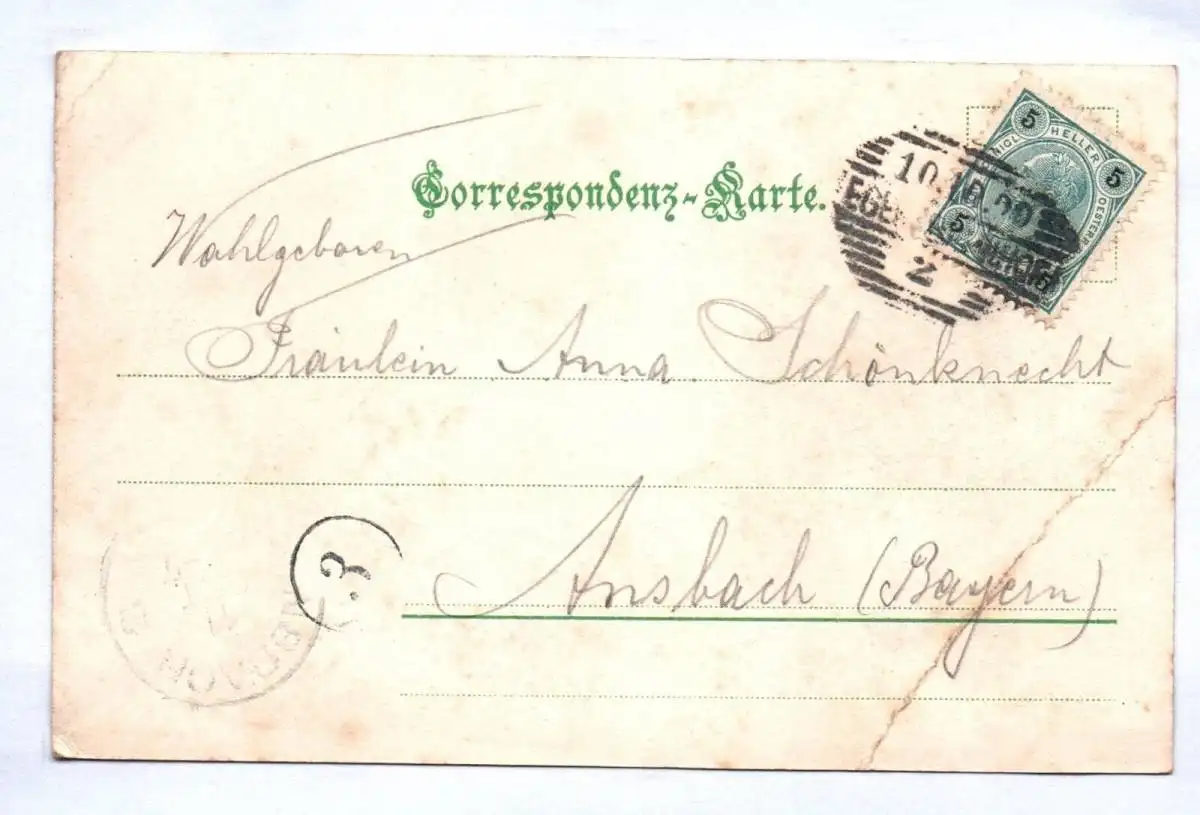 Correspondenz-Karte.
5 HELLER 5
5 5
10
2
Wohlgeboren
Fräulein Anna Schönknecht
Ansbach (Bayern)
3